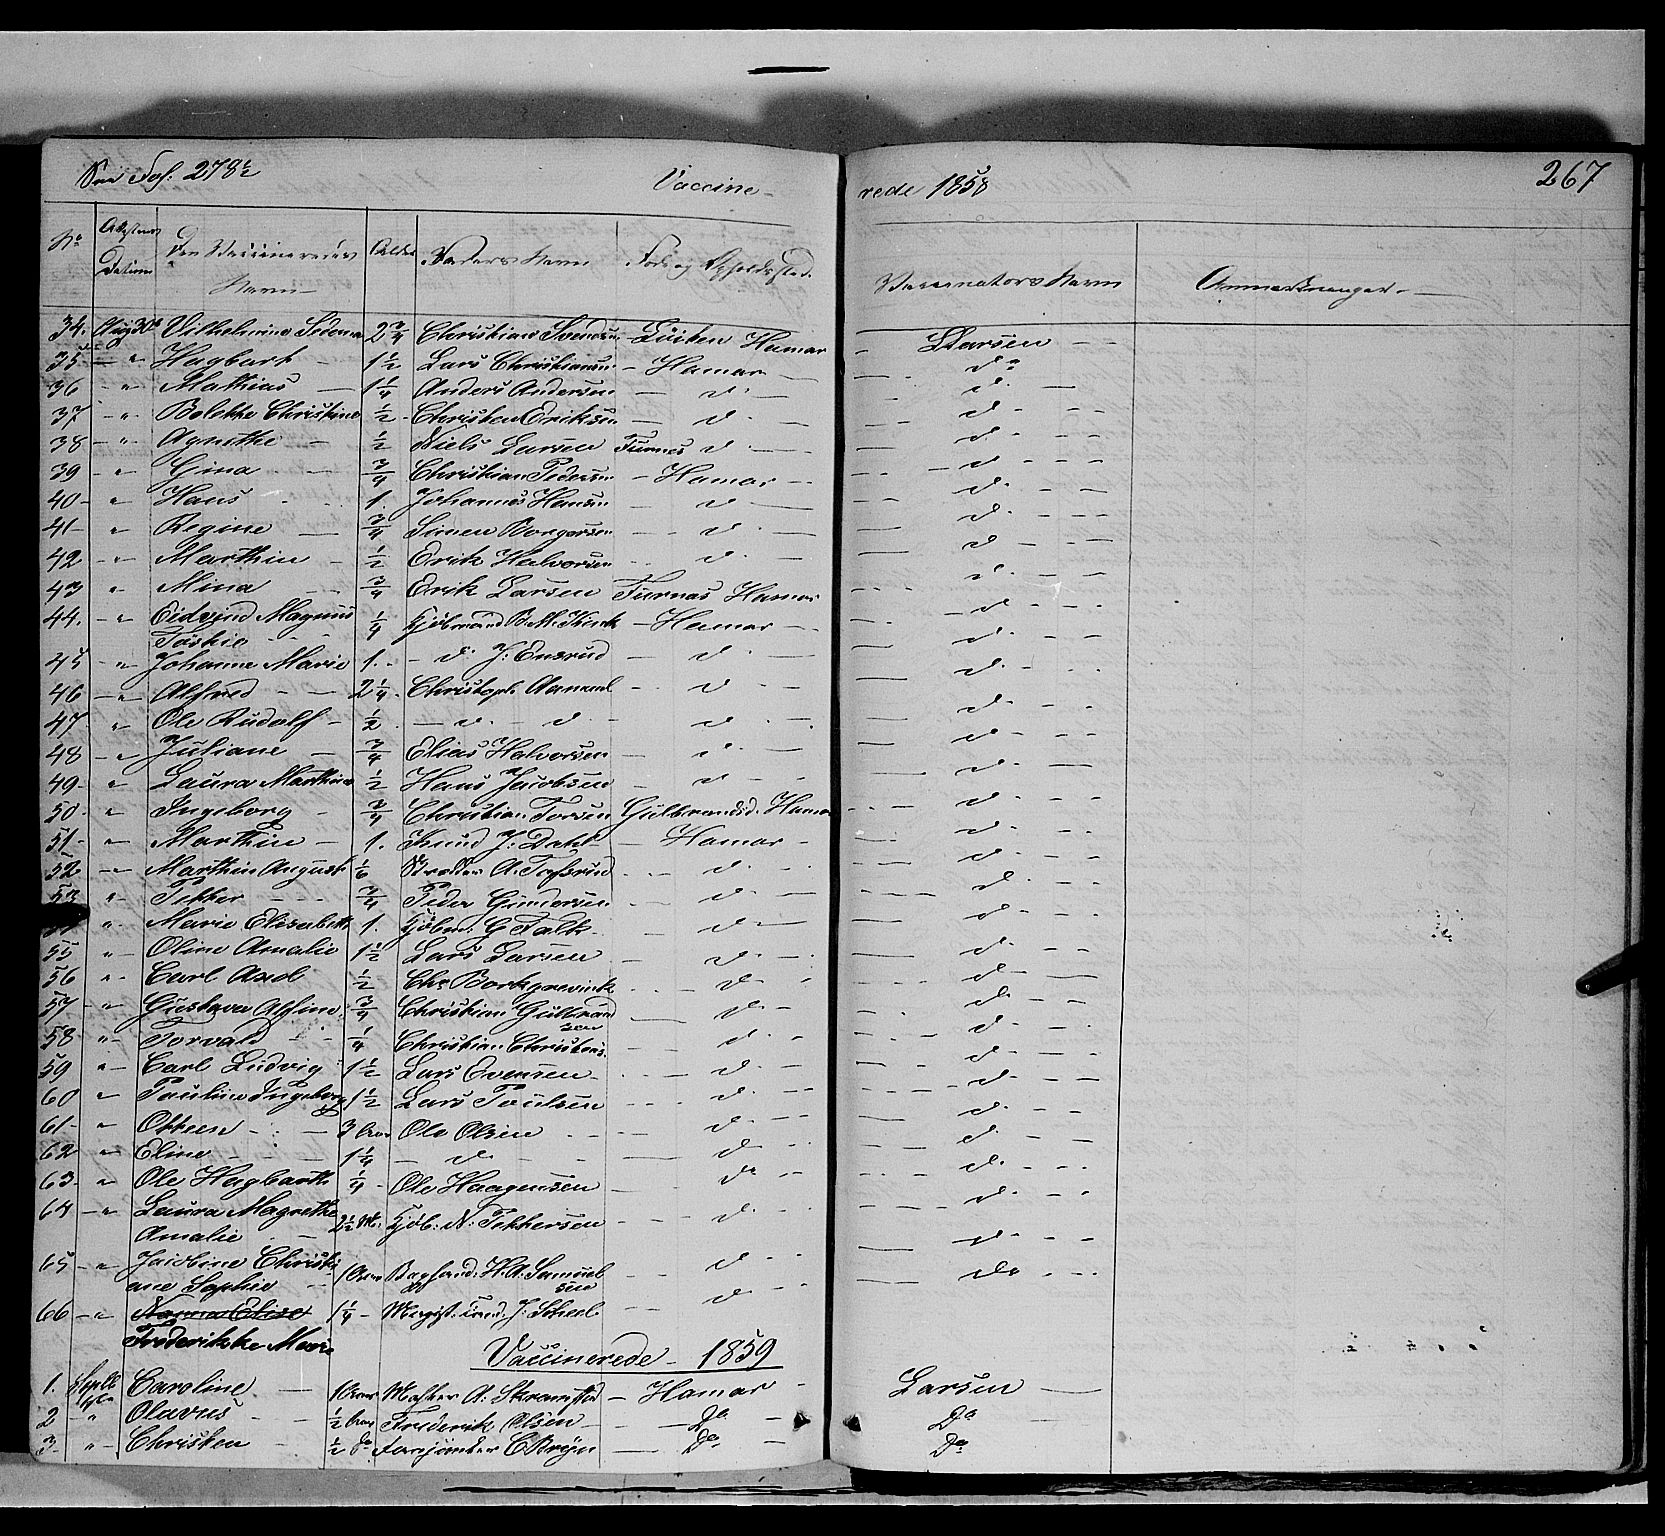 See Fol. 278½ Vaccine- rede 1858 267
No Attestens Datum Den Vaccineredes Navn Alder Faders Navn Føde og Opholdssted. Vaccinators Navn Anmærkninger
34. Aug 30te Vilhelmine 2¾ Christian Svendsen Hamar Larsen
35 " Hagbart 1½ Lars Christiansen Hamar do
36 " Mathias 1¼ Anders Andersen d. d.
37 " Bolethe Christine ½ Christen Eriksen d. d.
38 " Agnethe ½ Niels Larsen Furnes d. d.
39 " Gina ¾ Christian Pedersen Hamar d.
40 " Hans 1. Johannes Hansen d. d.
41 " Regine ¾ Simen Borgersen d. d.
42 " Marthin ½ Erik Halvorsen d. d.
43 " Mina ¾ Erik Larsen Furnæs Hamar d.
44. " Eidvind Magnus ¼ Kjøbmand B. M. Hamar d.
45 " Johanne Marie 1. d. J: Ensrud d. d.
46 " Alfred 2¼ Christoph d. d.
47 " Ole Rudolf ½ d. d. d. d.
48 " Juliane ¾ Elias Halvorsen d. d.
49 " Laura Marthine ½ Hans Jacobsen d. d.
50 " Ingeborg ¾ Christian Torsen Gulbrandsd. Hamar d.
51 " Marthin 1. Knud J: Dahl Hamar d.
52 " Marthin August ⅙ A. d. d.
53 " Petter ¾ Peder Gundersen d. d.
" Marie Elisabeth 1. Kjøbm. G Falk d. d.
55 " Oline Amalie 1½ Lars Larsen d. d.
56 " Carl Axel ½ Chr Borkgrevink d. d.
57 " Gustava Alfine ¾ Christian Gulbrand
sen d. d.
58 " Torvald ¼ Christian Christens. d. d.
59 " Carl Ludvig 1½ Lars Evensen d. d.
60 " Pauline Ingeborg 1½ Lars Poulsen d. d.
61 " Otteen 3 Ole Olsen d. d.
62 " Eline 1¼ d. d. d.
63 " Ole Hagbarth ¼ Ole Haagensen do d.
64 " Laura Magrethe
Amalie 2½ M. Kjøb: N: Pettersen d. d.
65 " Jacobine Christi
ane Sophie 1 Aar H. A. Samuel
sen d. do
66 " Nanna Elise 1¼ J: Scheel d.
Frederikke Marie
Vaccinerede 1859
1. Caroline 1 A. Skramstad Hamar Larsen
2 " Olavus ½ Frederik Olsen Do Do
3 " Christen ½ do C Bryn Do Do